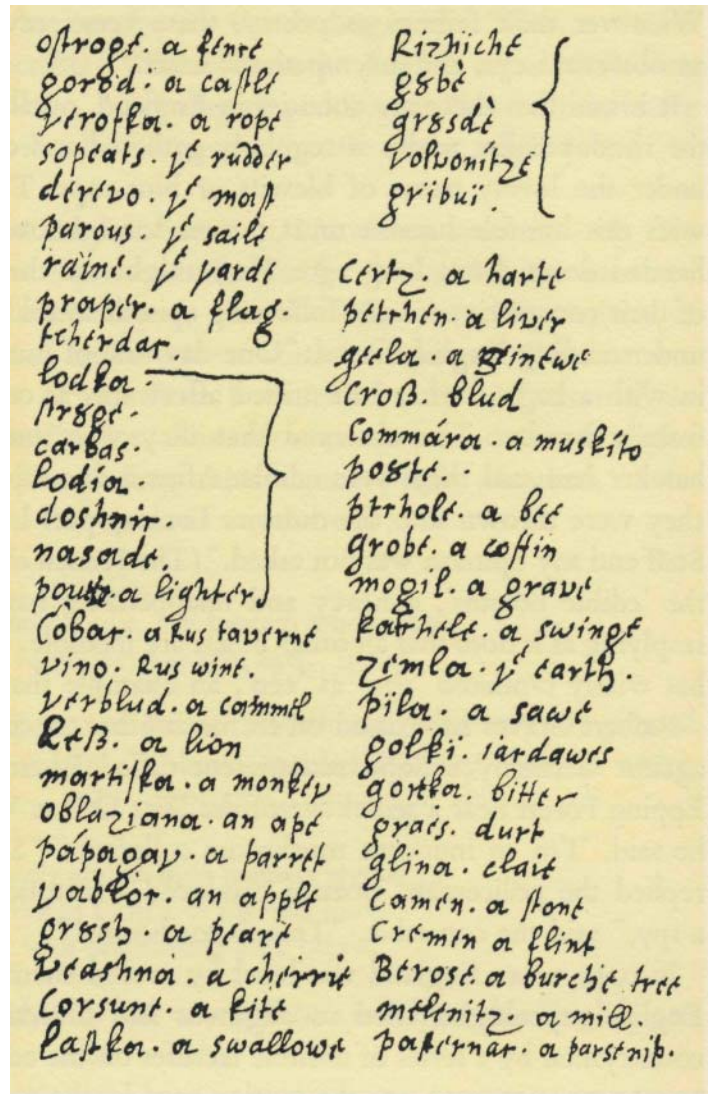 oſtroge. a fence
gorȣd: a caſtle
verofka. a rope
sopeats. yͤ rudder
derevo. yͤ maſt
parous. yͤ saile
raine. yͤ yarde
praper. a flag.
tcherdar.
lodka.
ſtrȣge.
carbas.
lodia.
doshnir.
nasade.
a lighter
Còbar. a Rus taverne
vino. Rus wine.
verblud. a cammel
Leß. a lion
martiſka. a monkey
oblaziana. an ape
pápagay. a parret
yablor. an apple
grȣsh. a peare
Veashna. a cherrie
Corsune. a kite
Laſtka. a swallowe
Rizhiche
gȣbè
grȣsdè
volvonitze
gribuï.
Certz. a harte
petrhen. a liver
geela. a
Croß. blud
Commára. a muskito
poȣte.
ptrhole. a bee
grobe. a coffin
mogil. a grave
karhele. a swinge
Zemla. yͤ earth.
pïla. a sawe
golkï. iardawes
gorka. bitter
graes. durt
glina. claie
Camen. a ſtone
Cremen a flint
Berose. a burche tree
melenitz. a mill.
paſternar. a parsenip.